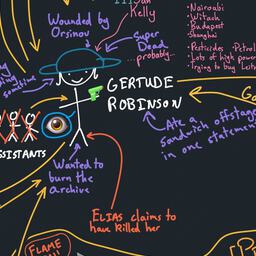 Jan
Kelly
Wounded by
Orsinov
Super
Dead
...probably...
- Nairobi
- Witach
- Budapest
- Shanghai
- Pesticides
- Petrol
- Lots of high power
- Trying to buy
GERTUDE
ROBINSON
Ate a
sandwich offstage
in one statement
SISTANTS
Wanted to
burn the
archive
ELIAS claims to
have killed her
FLAME